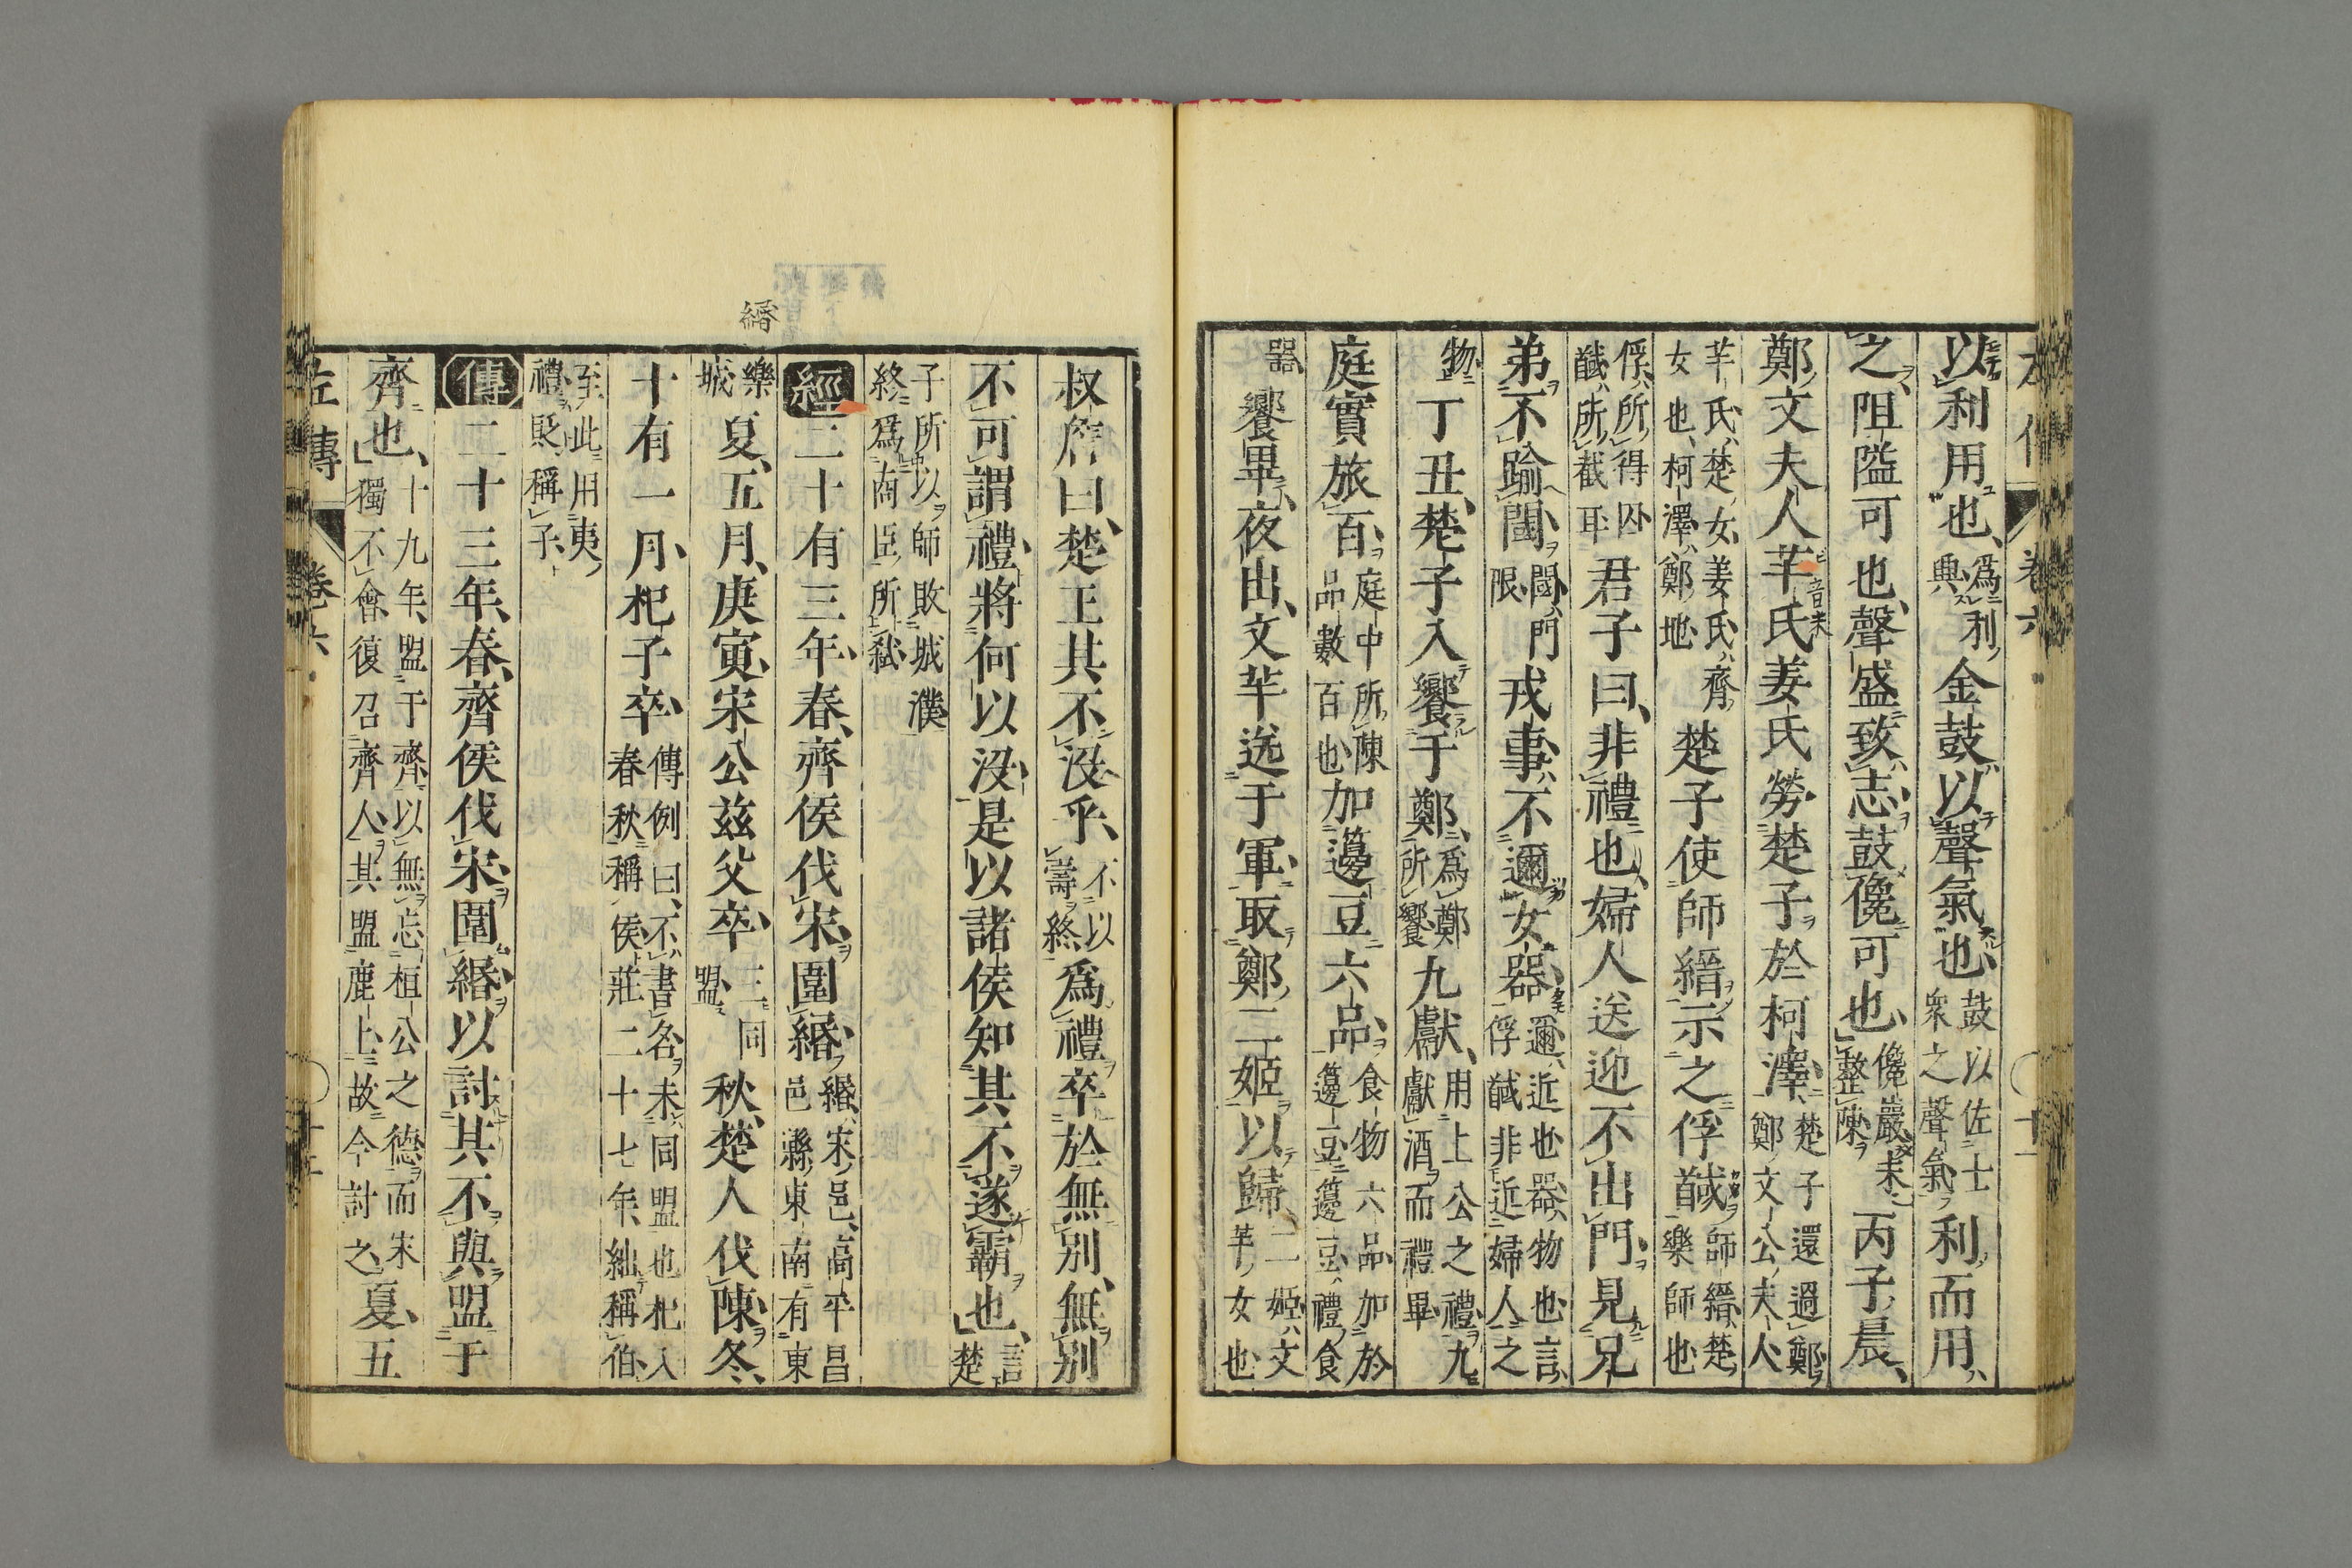 以利用也爲利興金鼓以聲氣也鼓以佐士衆之聲氣利而用
之阻隘可也聲盛致志鼓儳可也儳巖未整陳丙子晨
鄭文夫人芉氏姜氏勞楚子於柯澤楚子還過鄭鄭文公夫人
芉氏楚女姜氏齊女也柯澤鄭地楚子使師縉示之俘馘師縉楚樂師也
俘所得囚馘所截耳君子曰非禮也婦人送迎不出門見兄
弟不踰閾閾門限戎事不邇女器邇近也器物也言俘馘非近婦人之
物丁丑楚子入饗于鄭爲鄭所饗九獻用上公之禮九獻酒而禮畢
庭實旅百庭中所陳品數百也加籩豆六品食物六品加於籩豆籩豆禮食
器饗畢夜出文芉送于軍取鄭二姬以歸二姬文芉女也
叔詹曰楚王其不沒乎不以壽終爲禮卒於無別無別
不可謂禮將何以沒是以諸侯知其不遂霸也言楚
子所以師敗城濮終爲商臣所弑
緡
經二十有三年春齊侯伐宋圍緡緡宋邑高平昌邑縣東南有東
緡城夏五月庚寅宋公茲父卒三同盟秋楚人伐陳冬
十有一月杞子卒傳例曰不書名未同盟也杞入春秋稱侯莊二十七年絀稱伯
至此用夷禮貶稱子
傳二十三年春齊侯伐宋圍緡以討其不與盟于
齊也十九年盟于齊以無忘桓公之德而宋獨不會復召齊人其盟鹿上故今討之夏五
左傳 卷六